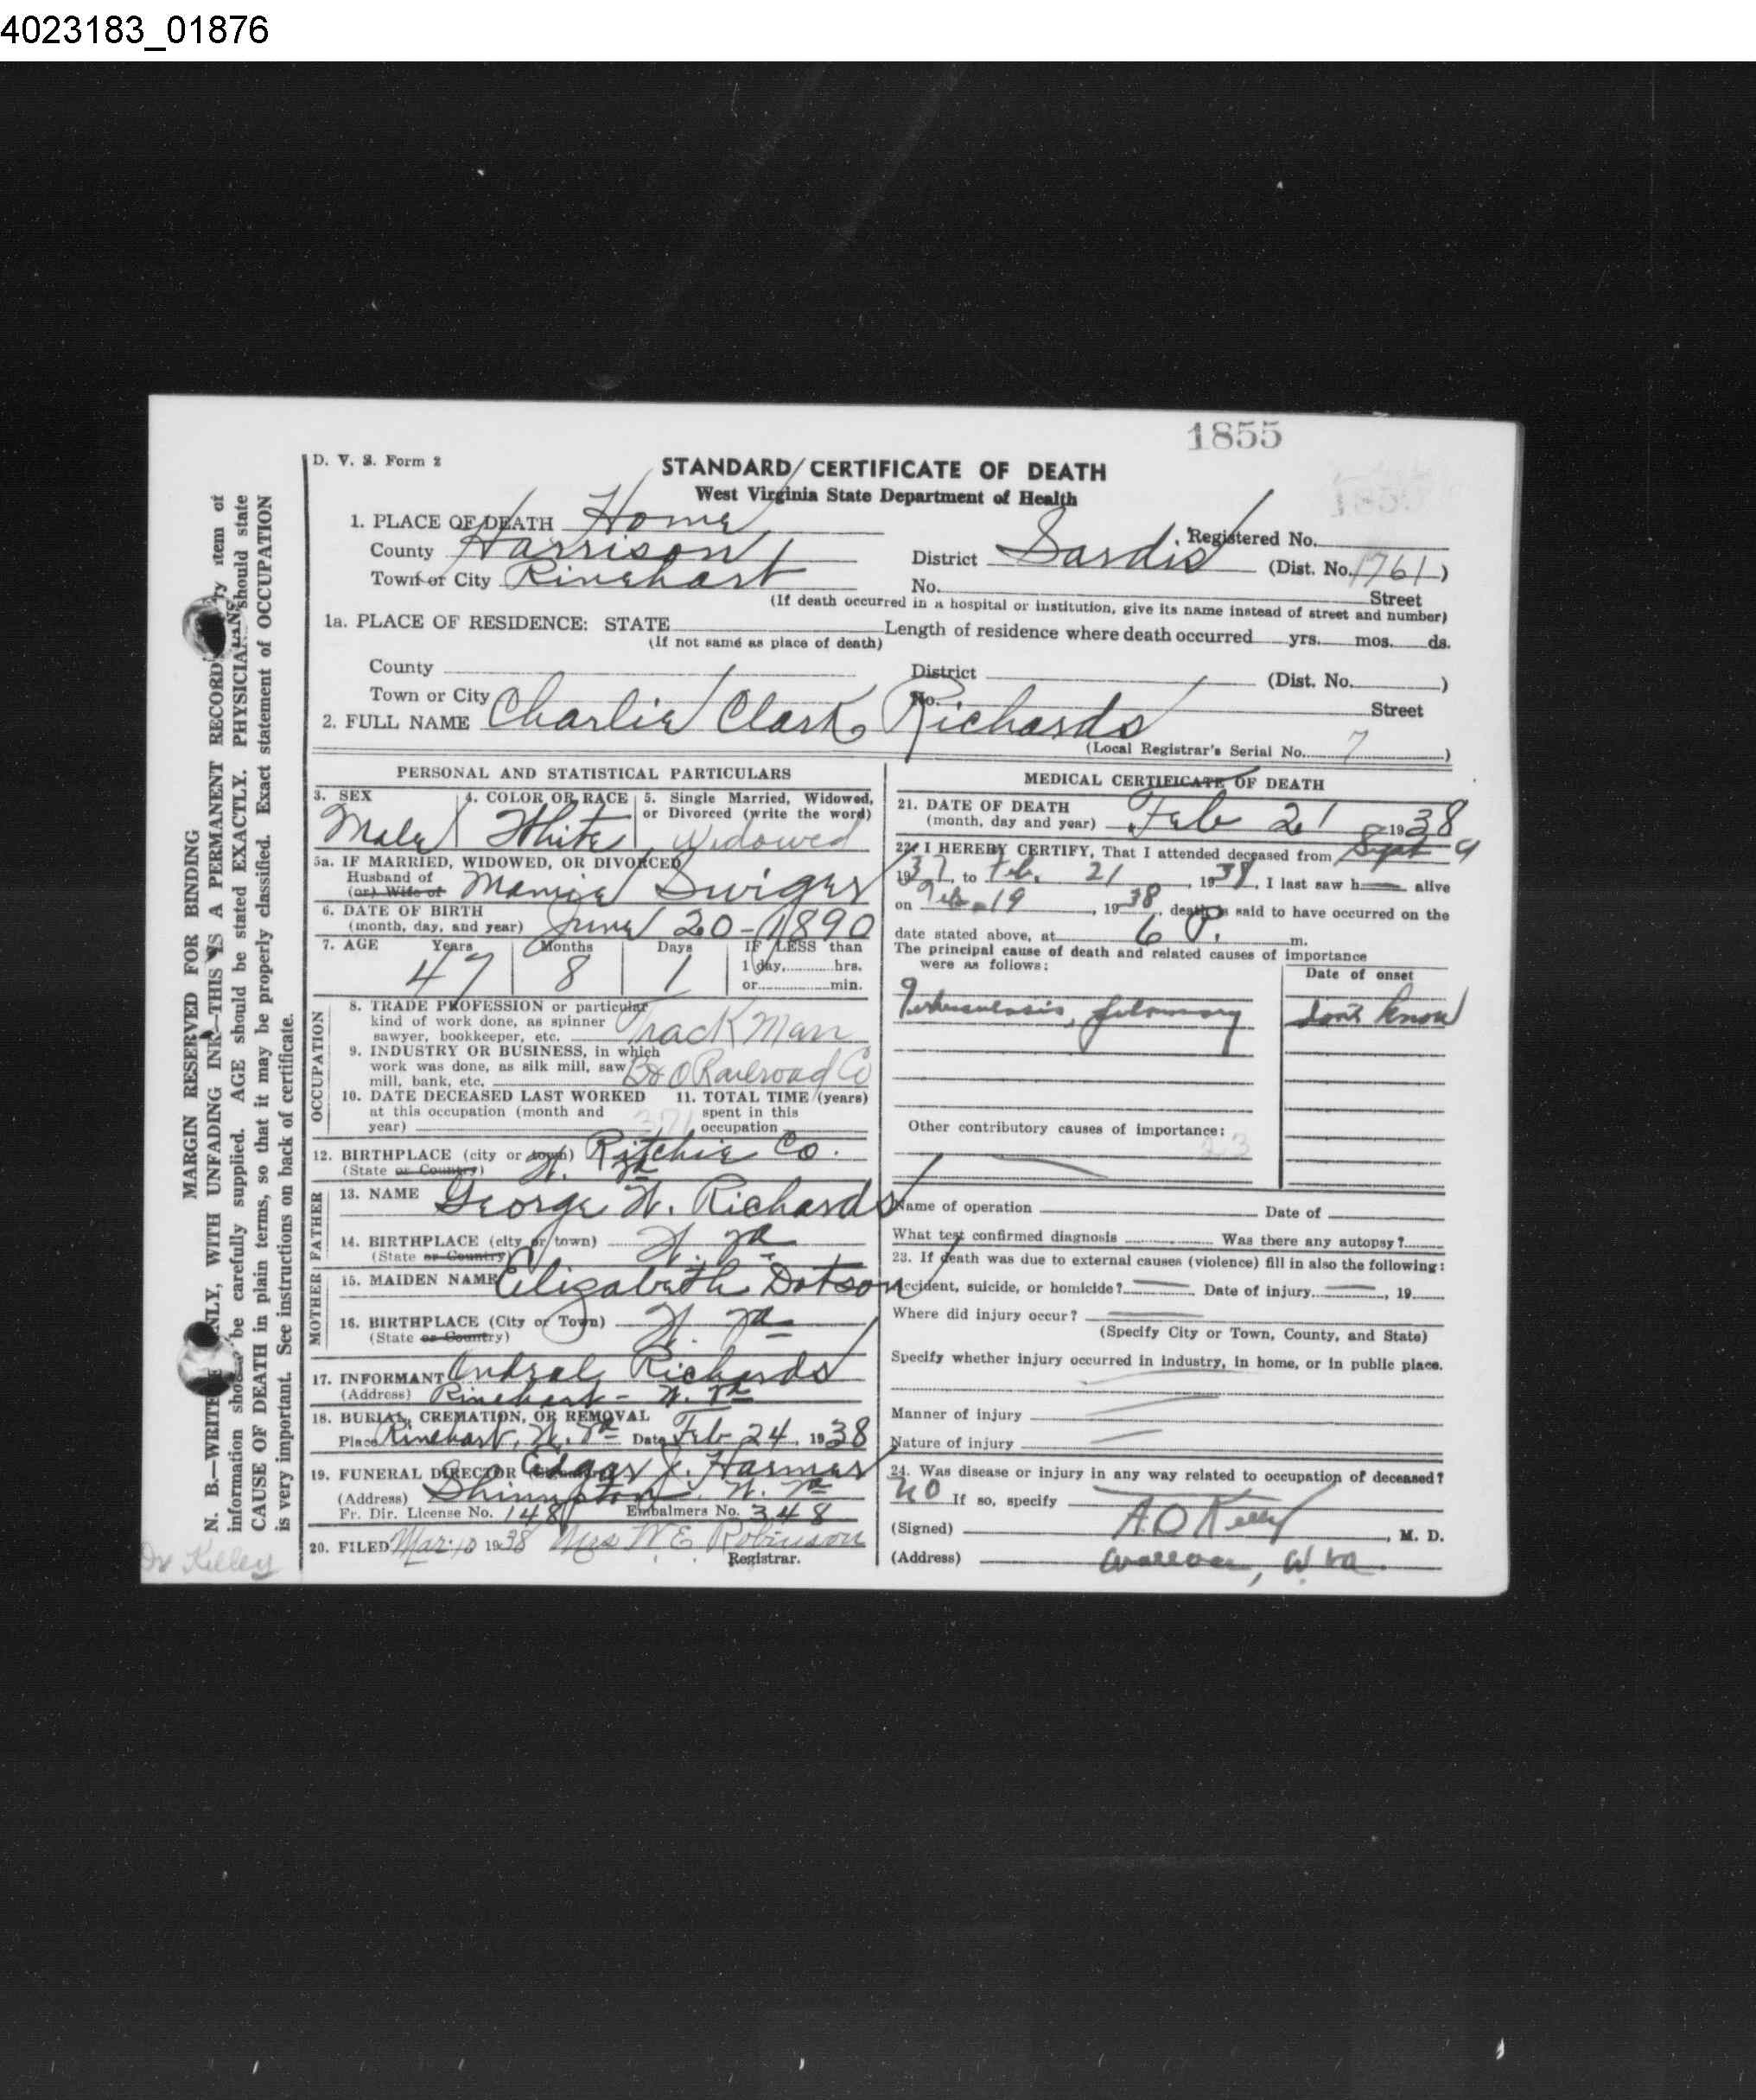 4023183_01876
1855
D. V. S. Form 2
STANDARD CERTIFICATE OF DEATH
West Virginia State Department of Health
1. PLACE OF DEATH Home
Registered No.
County Harrison
District Sardis (Dist. No. 1761)
Town or City Rinehart
No. Street
(If death occurred in a hospital or institution, give its name instead of street and number)
1a. PLACE OF RESIDENCE: STATE
Length of residence where death occurred yrs. mos. ds.
(If not same as place of death)
County
District (Dist. No. )
Town or City
No. Street
2. FULL NAME Charlie Clark Richards
(Local Registrar's Serial No. 7 )
PERSONAL AND STATISTICAL PARTICULARS
3. SEX
Male
4. COLOR OR RACE
White
5. Single Married, Widowed,
or Divorced (write the word)
Widowed
5a. IF MARRIED, WIDOWED, OR DIVORCED
Husband of
(or) Wife of Mamie Swiger
6. DATE OF BIRTH
(month, day, and year) June 20-1890
7. AGE Years Months Days IF LESS than
47 8 1 1 day, hrs.
or min.
OCCUPATION
8. TRADE PROFESSION or particular
kind of work done, as spinner
sawyer, bookkeeper, etc. Track Man
9. INDUSTRY OR BUSINESS, in which
work was done, as silk mill, saw
mill, bank, etc. B & O Railroad Co
10. DATE DECEASED LAST WORKED
at this occupation (month and
year)
11. TOTAL TIME (years)
spent in this
occupation
12. BIRTHPLACE (city or town) Ritchie Co.
(State or Country) W. Va
FATHER
13. NAME George W. Richards
14. BIRTHPLACE (city or town) W. Va
(State or Country)
MOTHER
15. MAIDEN NAME Elizabeth Dotson
16. BIRTHPLACE (City or Town) W. Va
(State or Country)
17. INFORMANT Andral Richards
(Address) Rinehart - W. Va
18. BURIAL, CREMATION, OR REMOVAL
Place Rinehart, W. Va Date Feb 24, 1938
19. FUNERAL DIRECTOR Edgar J. Harmer
(Address) Shinnston, W. Va
Fr. Dir. License No. 148 Embalmers No. 348
20. FILED Mar. 10 1938 Mrs W. E. Robinson
Registrar.
MEDICAL CERTIFICATE OF DEATH
21. DATE OF DEATH
(month, day and year) Feb 21 1938
22. I HEREBY CERTIFY, That I attended deceased from Sept 9
1937, to Feb. 21, 1938, I last saw h alive
on Feb. 19, 1938, death is said to have occurred on the
date stated above, at 6 P. m.
The principal cause of death and related causes of importance
were as follows:
Date of onset
Tuberculosis, pulmonary don't know
Other contributory causes of importance:
23
Name of operation Date of
What test confirmed diagnosis Was there any autopsy?
23. If death was due to external causes (violence) fill in also the following:
Accident, suicide, or homicide? Date of injury , 19
Where did injury occur?
(Specify City or Town, County, and State)
Specify whether injury occurred in industry, in home, or in public place.
Manner of injury
Nature of injury
24. Was disease or injury in any way related to occupation of deceased?
no If so, specify
(Signed) A. O. Kelly, M. D.
(Address) W Va.
MARGIN RESERVED FOR BINDING
N. B.—WRITE ONLY, WITH UNFADING INK—THIS IS A PERMANENT RECORD. item of
information should be carefully supplied. AGE should be stated EXACTLY. PHYSICIANS should state
CAUSE OF DEATH in plain terms, so that it may be properly classified. Exact statement of OCCUPATION
is very important. See instructions on back of certificate.
Dr Kelley